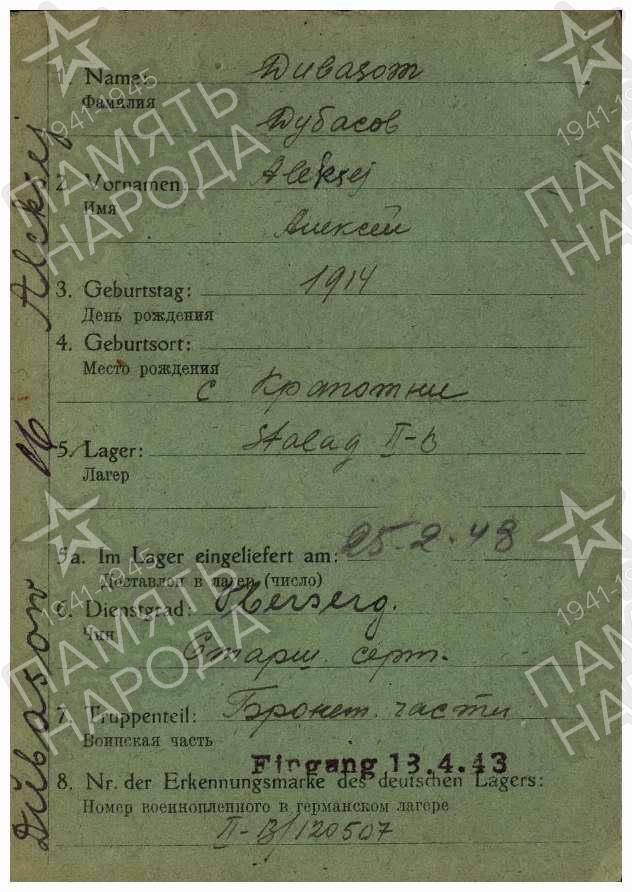 1. Name: Дивазот
Фамилия
Дубасов
2. Vornamen: Aleksej
Имя
Алексей
3. Geburtstag: 1914
День рождения
4. Geburtsort:
Место рождения
с
5. Lager: Stalag II-B
Лагер
5a. Im Lager eingeliefert am: 25.2.43
Доставлен в лагер (число)
6. Dienstgrad: Oberserg.
Чин
Старш. серж.
7. Truppenteil: Бронет. части
Воинская часть
Eingang 13.4.43
8. Nr. der Erkennungsmarke des deutschen Lagers:
Номер военнопленного в германском лагере
II-B/120507
Dubasow Aleksej
ПАМЯТЬ
НАРОДА
1941-1945
ПАМЯТЬ
НАРОДА
1941-1945
ПАМЯТЬ
НАРОДА
1941-1945
ПАМЯТЬ
НАРОДА
1941-1945